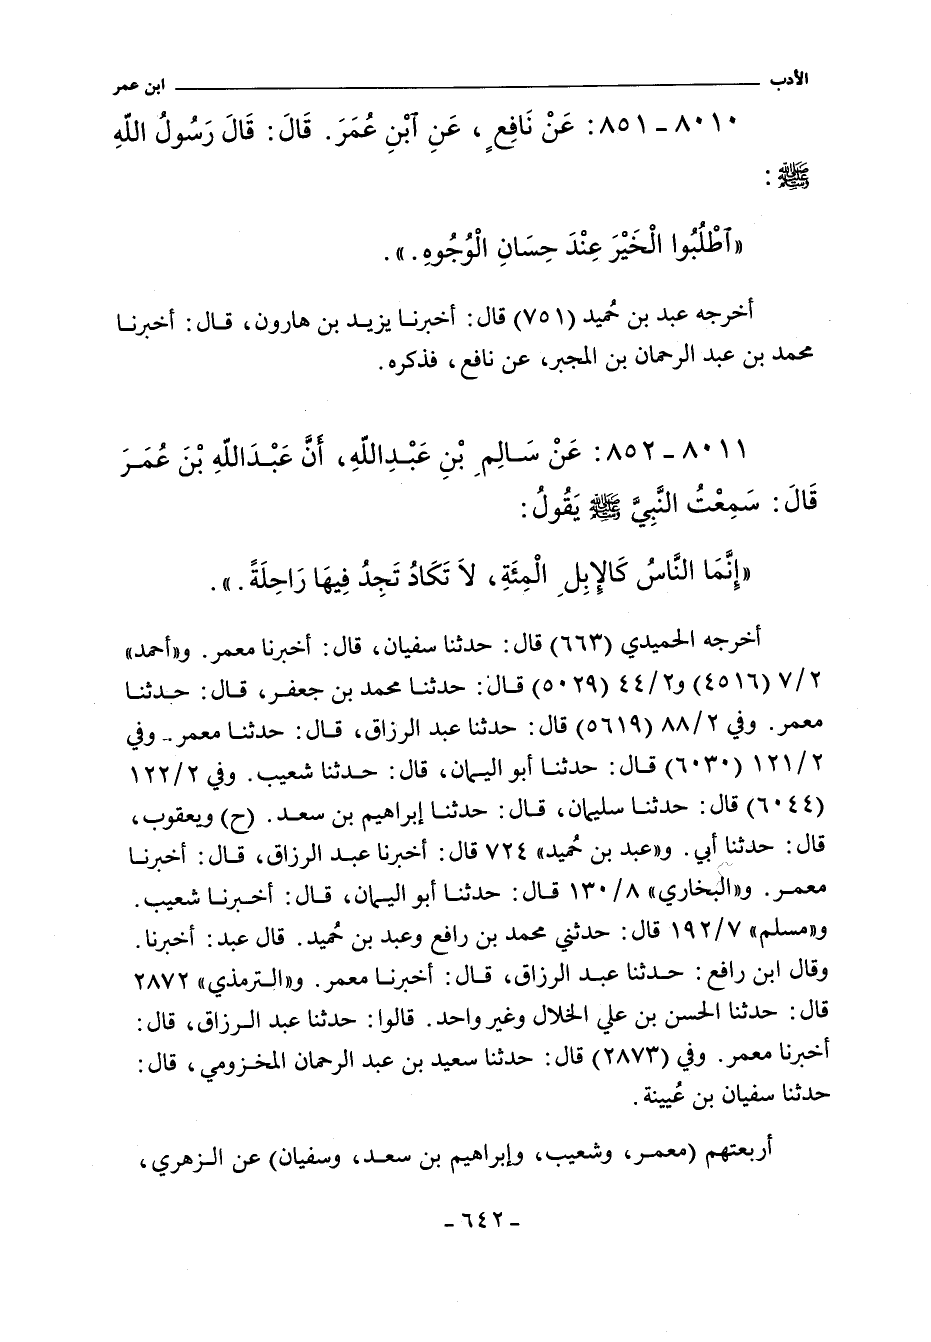 الأدب ابن عمر
٨٠١٠ - ٨٥١: عَنْ نَافِعٍ، عَنِ ٱبْنِ عُمَرَ. قَالَ: قَالَ رَسُولُ اللّهِ
ﷺ:
«ٱطْلُبُوا الْخَيْرَ عِنْدَ حِسَانِ الْوُجُوهِ.».
أخرجه عبد بن حُميد (٧٥١) قال: أخبرنا يزيد بن هارون، قال: أخبرنا
محمد بن عبد الرحمان بن المجبر، عن نافع، فذكره.
٨٠١١ - ٨٥٢: عَنْ سَالِمِ بْنِ عَبْدِاللّهِ، أَنَّ عَبْدَاللّهِ بْنَ عُمَرَ
قَالَ: سَمِعْتُ النَّبِيَّ ﷺ يَقُولُ:
«إِنَّمَا النَّاسُ كَالإِبِلِ الْمِئَةِ، لاَ تَكَادُ تَجِدُ فِيهَا رَاحِلَةً.».
أخرجه الحميدي (٦٦٣) قال: حدثنا سفيان، قال: أخبرنا معمر. و«أحمد»
٧/٢ (٤٥١٦) و٤٤/٢ (٥٠٢٩) قال: حدثنا محمد بن جعفر، قال: حدثنا
معمر. وفي ٨٨/٢ (٥٦١٩) قال: حدثنا عبد الرزاق، قال: حدثنا معمر. وفي
١٢١/٢ (٦٠٣٠) قال: حدثنا أبو اليمان، قال: حدثنا شعيب. وفي ١٢٢/٢
(٦٠٤٤) قال: حدثنا سليمان، قال: حدثنا إبراهيم بن سعد. (ح) ويعقوب،
قال: حدثنا أبي. و«عبد بن حُميد» ٧٢٤ قال: أخبرنا عبد الرزاق، قال: أخبرنا
معمر. و«البخاري» ١٣٠/٨ قال: حدثنا أبو اليمان، قال: أخبرنا شعيب.
و«مسلم» ١٩٢/٧ قال: حدثني محمد بن رافع وعبد بن حُميد. قال عبد: أخبرنا.
وقال ابن رافع: حدثنا عبد الرزاق، قال: أخبرنا معمر. و«الترمذي» ٢٨٧٢
قال: حدثنا الحسن بن علي الخلال وغير واحد. قالوا: حدثنا عبد الرزاق، قال:
أخبرنا معمر. وفي (٢٨٧٣) قال: حدثنا سعيد بن عبد الرحمان المخزومي، قال:
حدثنا سفيان بن عُيينة.
أربعتهم (معمر، وشعيب، وإبراهيم بن سعد، وسفيان) عن الزهري،
- ٦٤٢ -